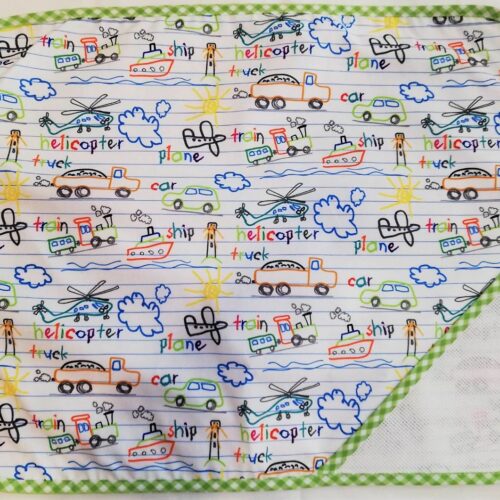 train ship helicopter plane
truck car
helicopter plane train ship
truck car
train ship helicopter plane
truck car
helicopter plane train ship
truck car
train ship helicopter